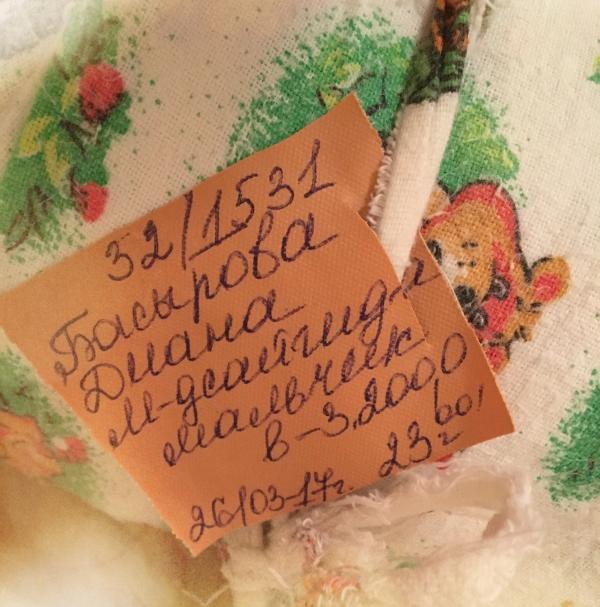 32/1531
Басырова
Диана
М-дсайгидл
мальчик
в-3.2000
26/03-17г. 23ч